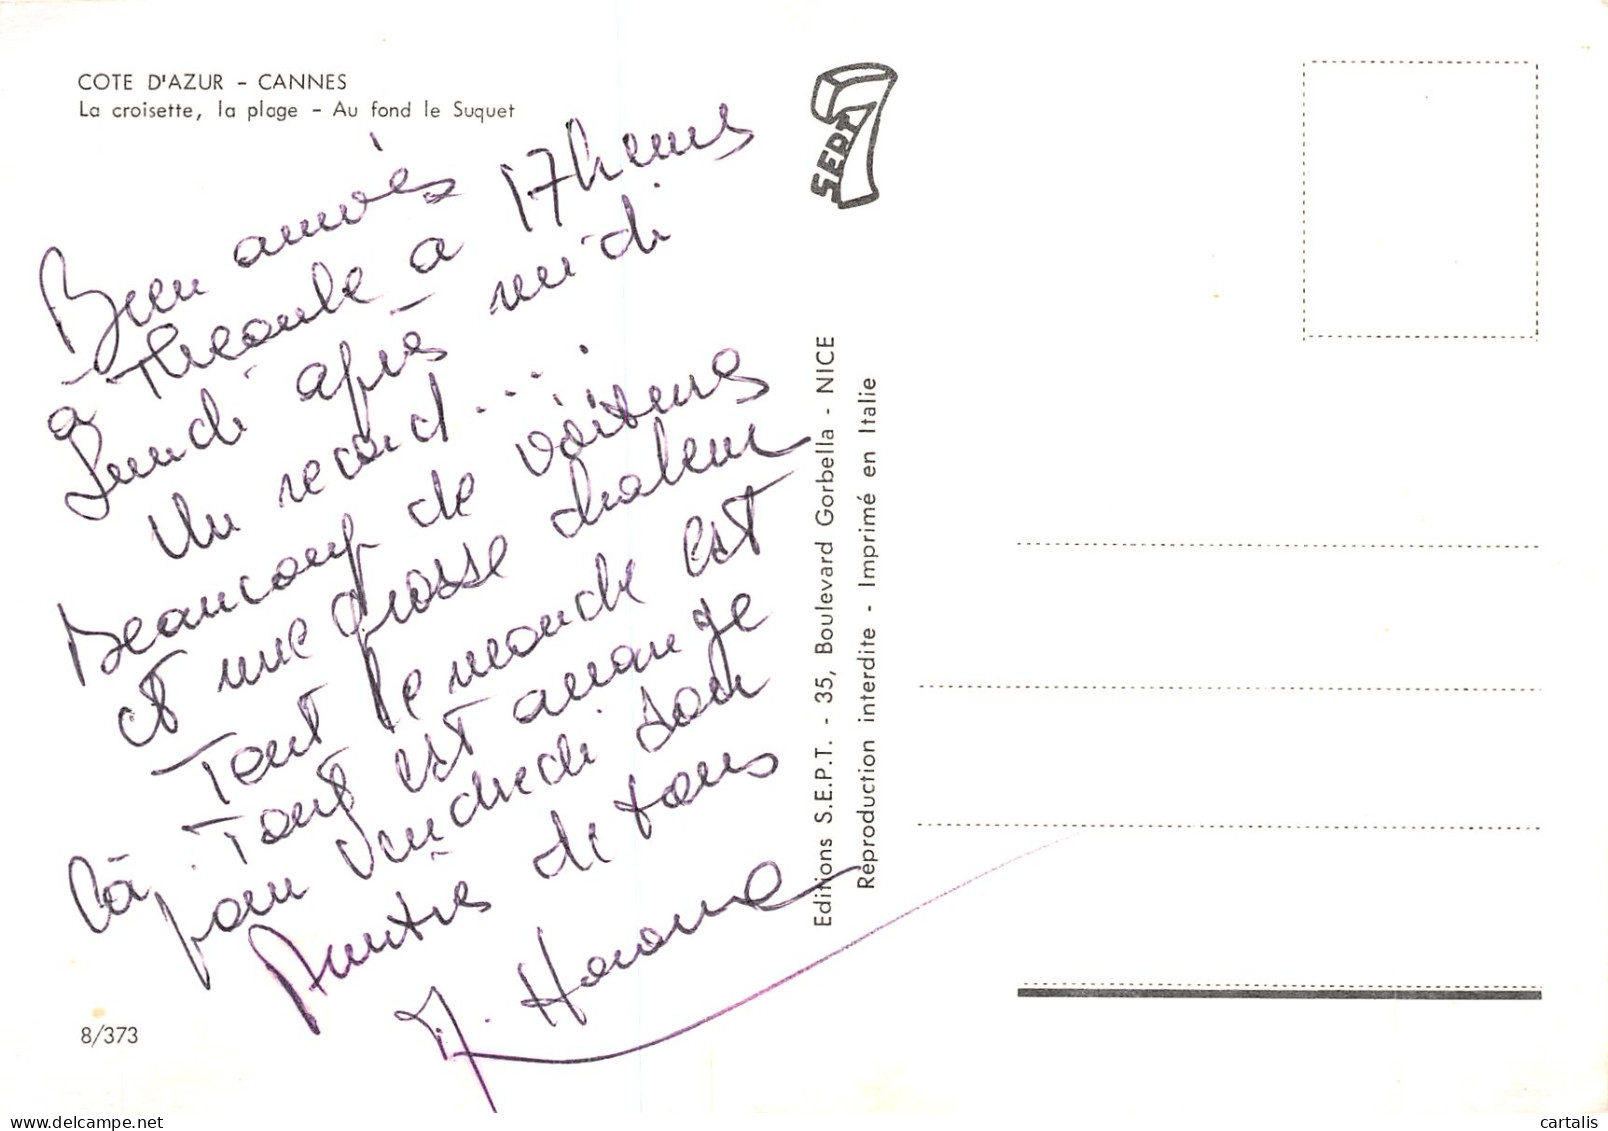 COTE D'AZUR - CANNES
La croisette, la plage - Au fond le Suquet
Bien arrivés
à Théoule à 17 heures
Lundi après midi
Un record...
Beaucoup de voitures
et une grosse chaleur
Tout le monde est
là. Tout est arrangé
pour Vendredi soir
Amitiés de tous
SEPT
Editions S.E.P.T. - 35, Boulevard Gorbella - NICE
Reproduction interdite - Imprimé en Italie
8/373
delcampe.net
cartalis